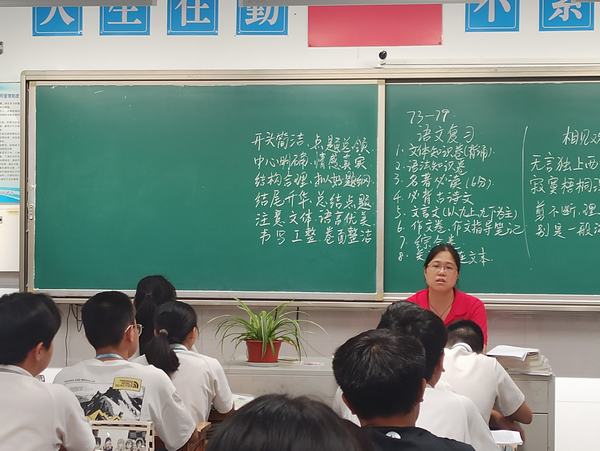 人生在勤
不索
开头简洁、点题总领
中心明确、情感真实
结构合理、拟好题纲
结尾升华、总结点题
注意文体、语言优美
书写工整、卷面整洁
73-79
语文复习
1、文体知识卷(背诵)
2、语法知识卷
3、名著必读(6分)
4、必背古诗文
5、文言文(以九上九下为主)
6、作文卷、作文指导笔记
7、综合卷
8、
主文本.
相见欢
无言独上西
寂寞梧桐深
剪不断、理
别是一般滋